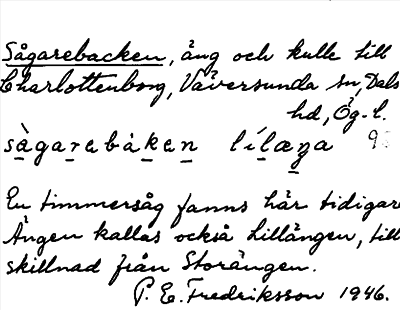 Sågarebacken, äng och kulle till
Charlottenborg, Väversunda sn, Dals
hd, Ög. l.
sàgarebàken lílæŋa 9
En timmersåg fanns här tidigare
Ängen kallas också Lillängen, till
skillnad från Storängen.
P. E. Fredriksson 1946.